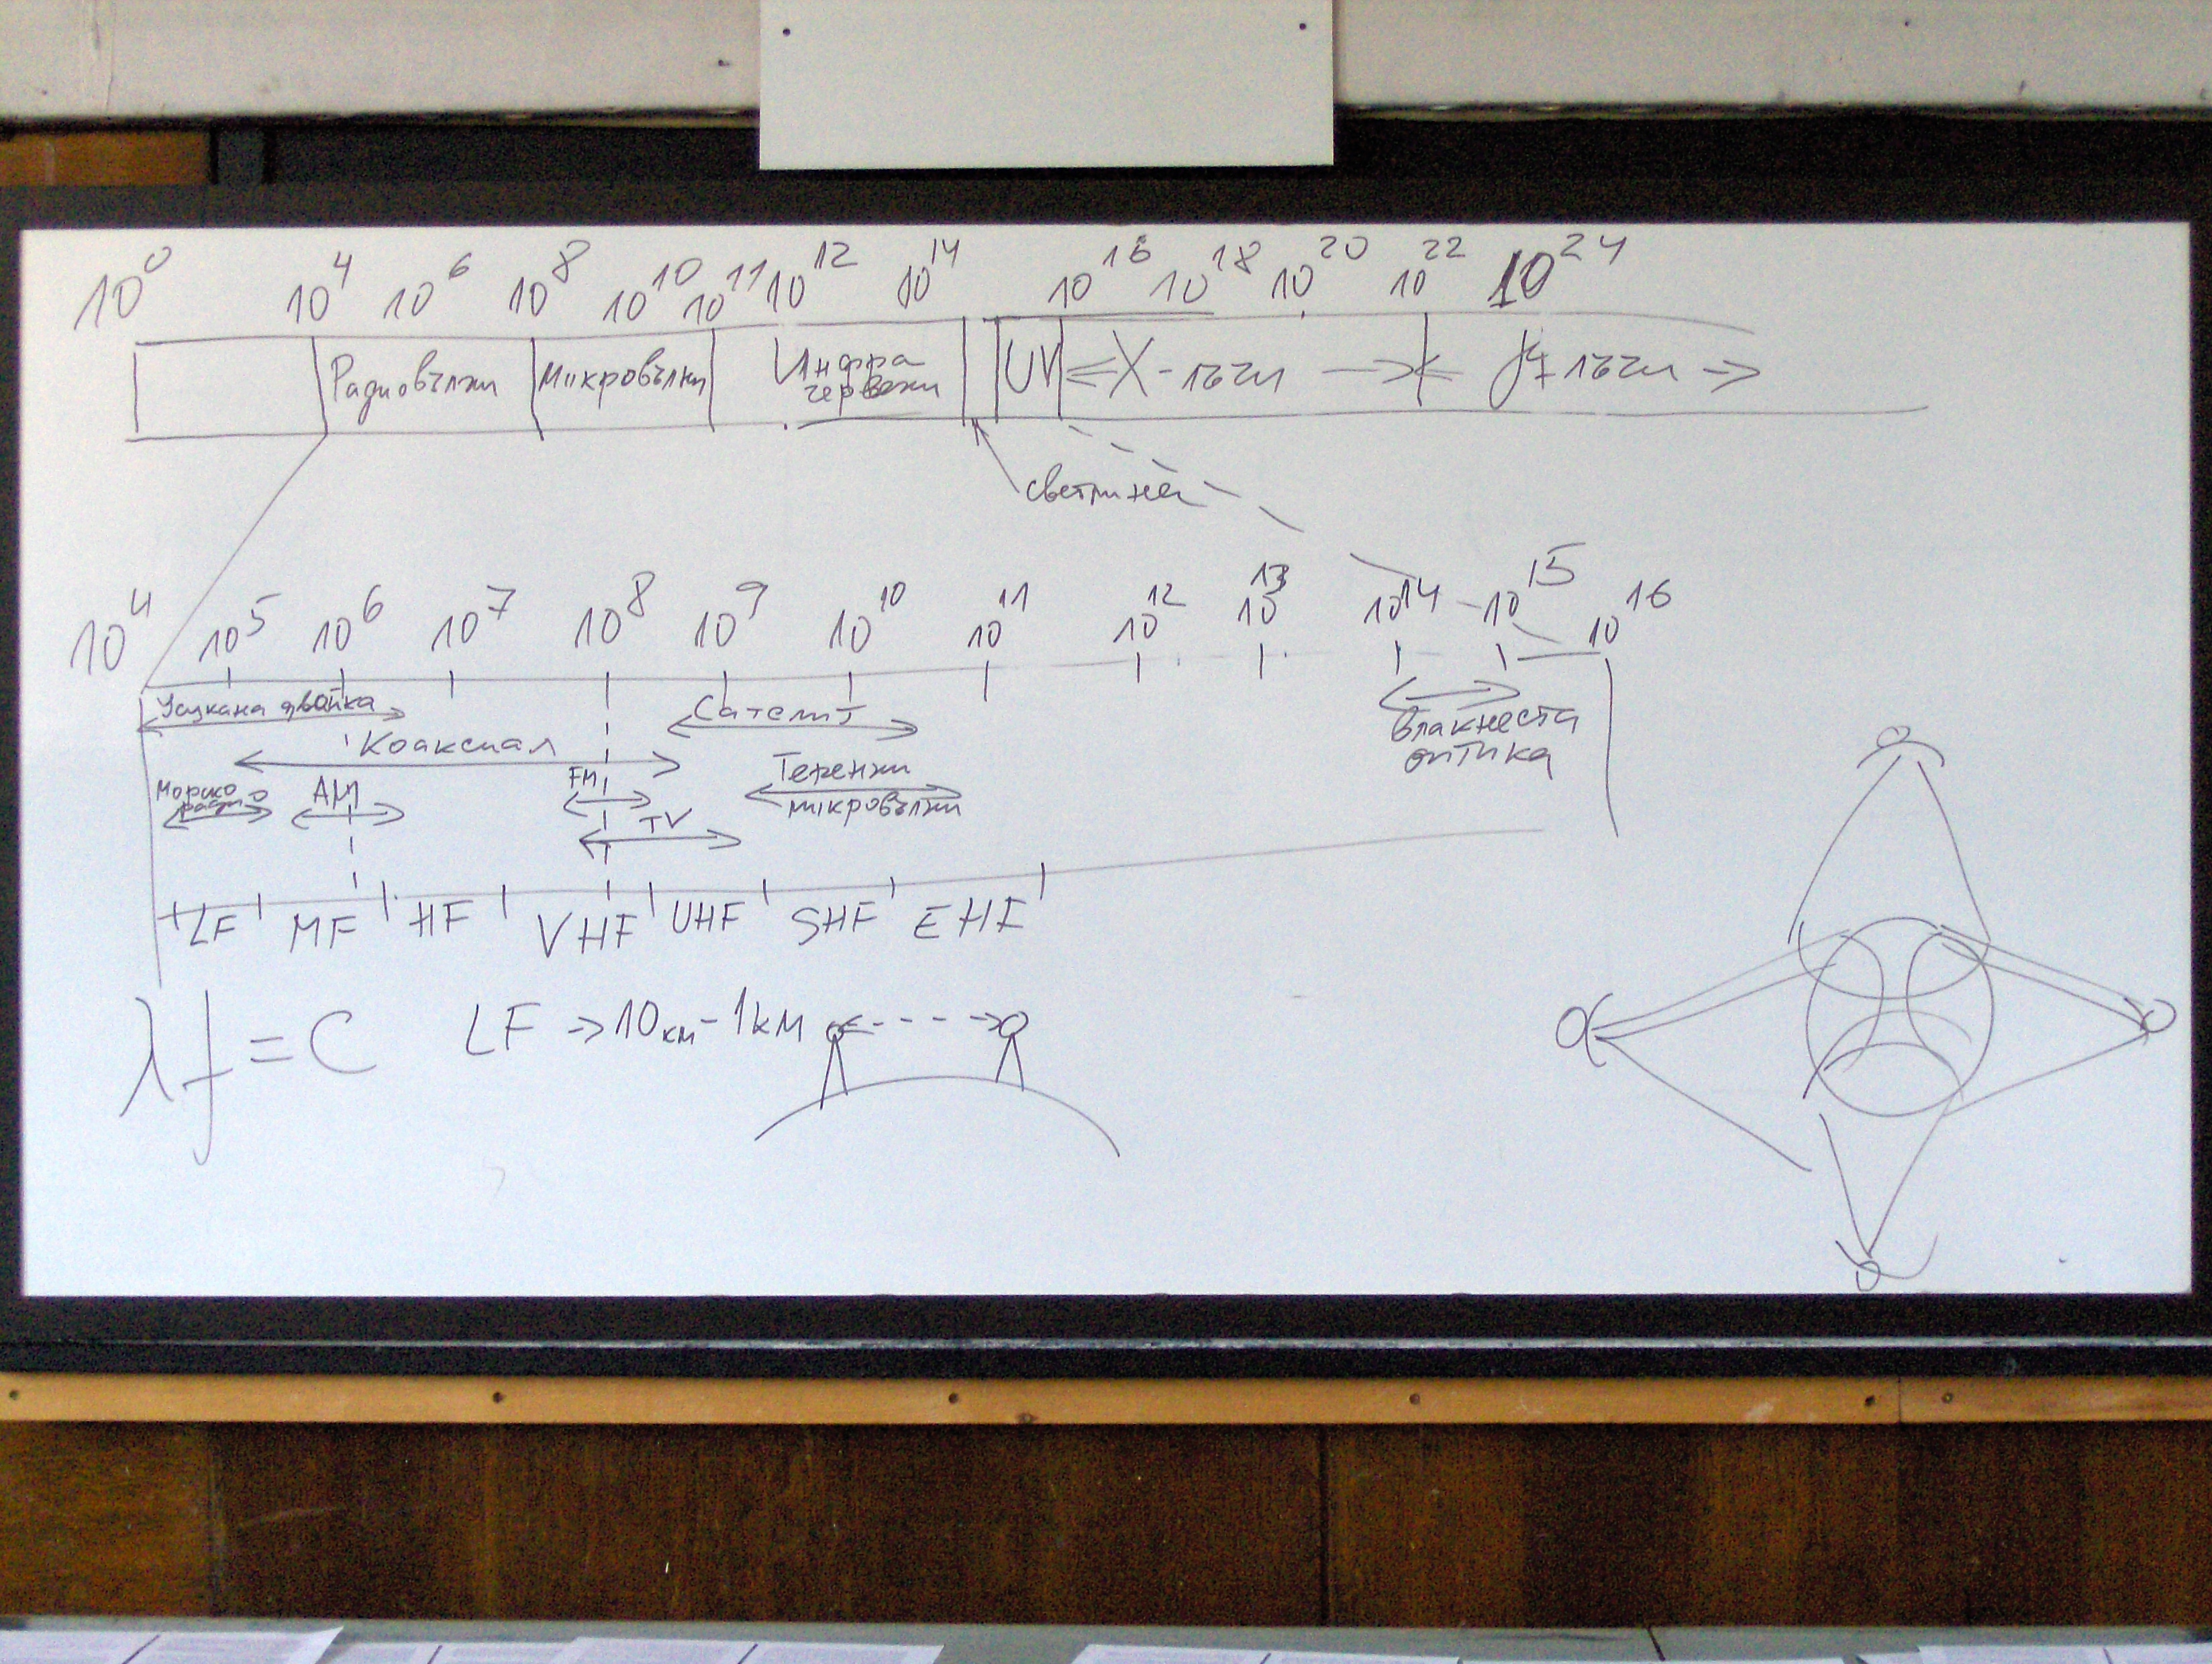 10⁰ 10⁴ 10⁶ 10⁸ 10¹⁰ 10¹¹ 10¹² 10¹⁴ 10¹⁶ 10¹⁸ 10²⁰ 10²² 10²⁴
Радиовълни Микровълни Инфра UV X-лъчи γ лъчи
червени
светлина
10⁴ 10⁵ 10⁶ 10⁷ 10⁸ 10⁹ 10¹⁰ 10¹¹ 10¹² 10¹³ 10¹⁴ 10¹⁵ 10¹⁶
Усукана двойка Сателит Влакнеста
оптика
Коаксиал
Морско AM FM Теренни
радио микровълни
TV
LF MF HF VHF UHF SHF EHF
λf = C LF → 10км - 1км